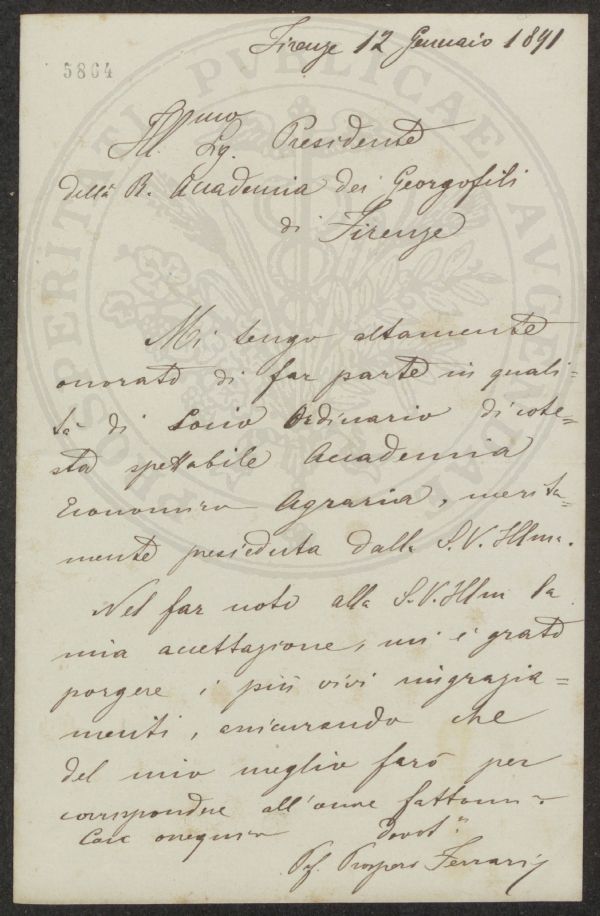 Firenze 12 Gennaio 1891
5864
Ill.mo Sig. Presidente
della R. Accademia dei Georgofili
di Firenze
Mi tengo altamente
onorato di far parte in quali=
tà di Socio Ordinario di cote=
sta spettabile Accademia
Economico Agraria, merita=
mente presieduta dalla S.V. Illma.
Nel far noto alla S.V. Illm la
mia accettazione, mi è grato
porgere i più vivi ringrazia=
menti, assicurando che
del mio meglio farò per
corrispondere all'onore fattomi.
Con ossequio
Devot.
Pf. Prospero Ferrari
PROSPERITATI PVBLICAE AVGENDAE